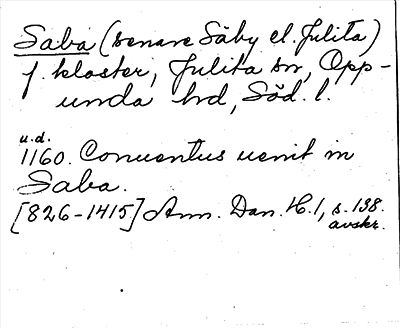 Saba (senare Säby el. Julita)
f. kloster, Julita sn, Opp-
unda hd, Söd. l.
u.d.
1160. Conuentus uenit in
Saba.
[826-1415] Ann. Dan. H. 1, s. 138.
avskr.